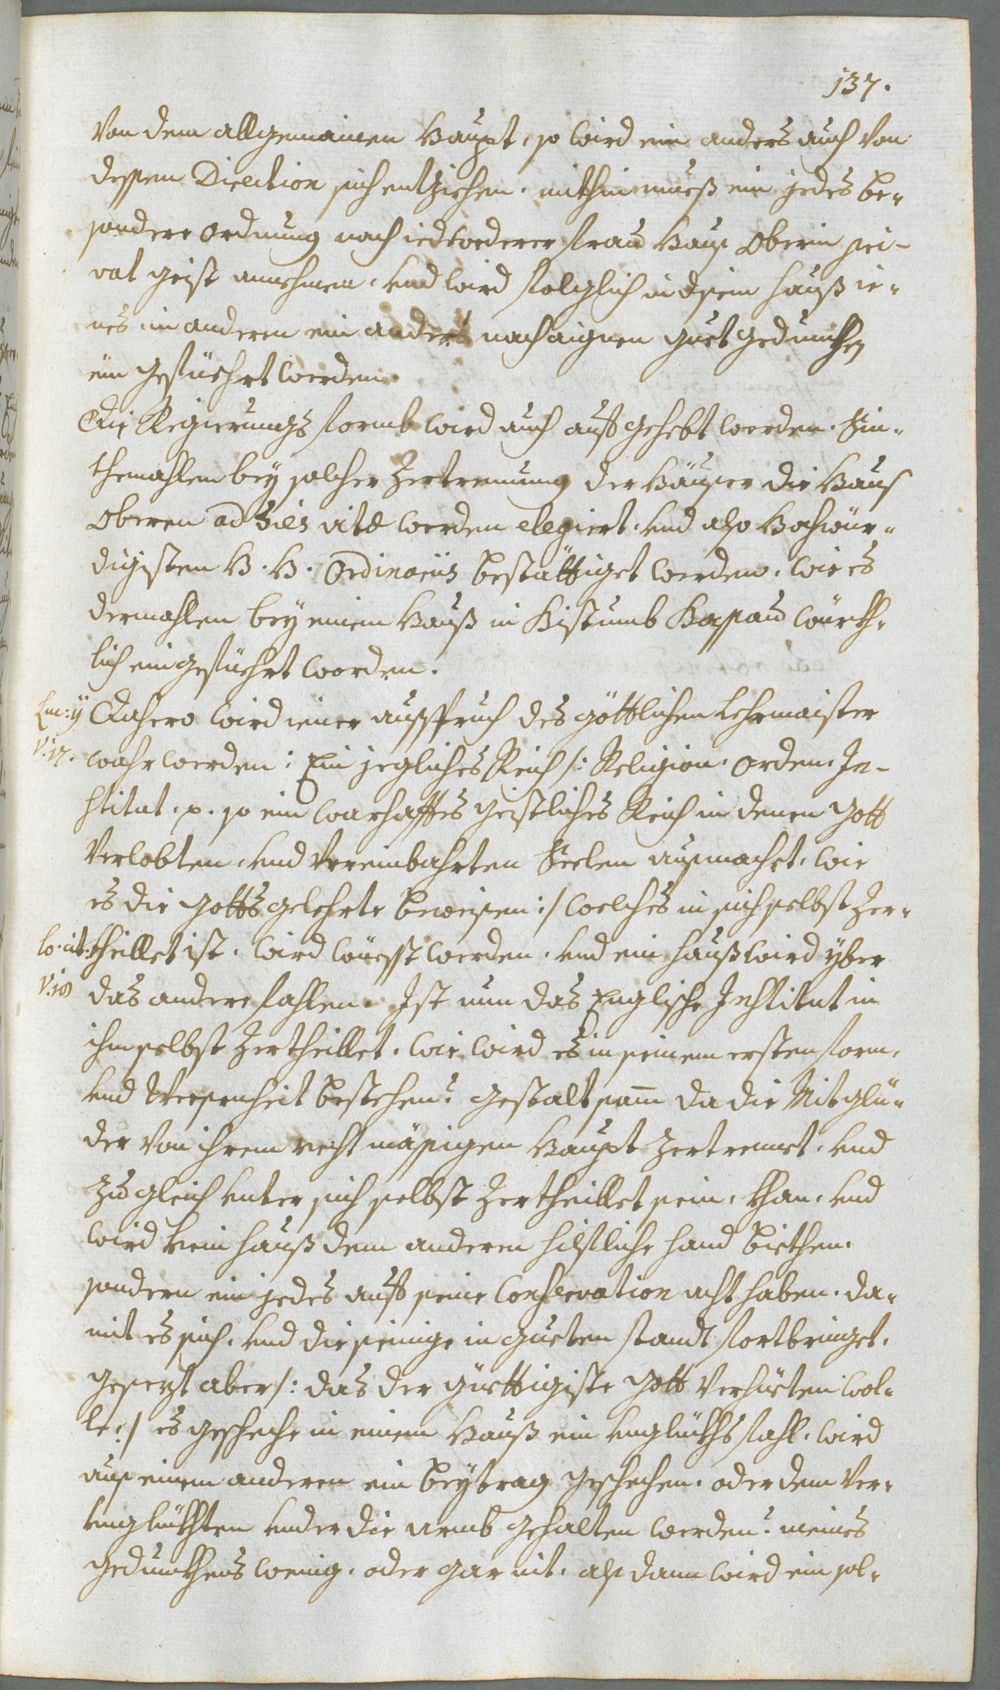 137.
Von dem allgemainen Haupt, so wird ein anders auch von
dessen Direction sich entziehen. mithin mueß ein jedes be-
sondere ordnung nach iedtwederer frau Haus Oberin pri-
vat geist annehmen, und wird folglich in disem hauß ie-
nes, in anderen ein anders nach aignen guet gedunckhen
ein gefüehrt werden.
Die Regierungs formb wird auch auffgehebt werden. Sin-
themahlen bey solcher Zertrennung der Häuser die Haus
Oberen ad dies vitæ werden elegiert, und also Hochwür-
digisten H. H. Ordinariis bestättiget werden, wie es
dermahlen bey einem Hauß in Bistumb Passau würckh-
lich eingefüehrt worden.
Luc: ij Dahero wird iener ausspruch des göttlichen Lehrmaister
v. 17. wahr werden: Ein jegliches Reich /: Religion, Orden, In-
stitut. p. so ein warhafftes geistliches Reich in denen Gott
Verlobten, und Vereinbahrten Seelen ausmachet, wie
es die Gottsgelehrte beweisen :/ welches in sich selbst Zer-
lo. cit: theillet ist, wird wüesst werden, und ein hauß wird yber
v. 18 das andere fahlen. Ist nun das Englische Institut in
ihm selbst Zertheillet, wie wird es in seinem ersten form,
und Wesenheit bestehen? gestaltsam da die Mitglü-
der von ihrem recht mässigen Haupt Zertrennet, und
Zugleich unter sich selbst Zertheillet sein, khan, und
wird kein hauß dem anderen hilfliche hand biethen.
sondern ein jedes auff seine Conservation acht haben, da-
mit es sich, und die seinige in gueten standt fortbringet.
gesezt aber /: das der güettigiste Gott verhüeten wol-
le :/ es geschehe in einem Hauß ein unglückhsfahl, wird
aus einem anderen ein beytrag geschehen, oder dem Ver-
unglückhten under die armb gehalten werden? meines
gedunckhens wenig, oder gar nit. alsdann wird ein sol-